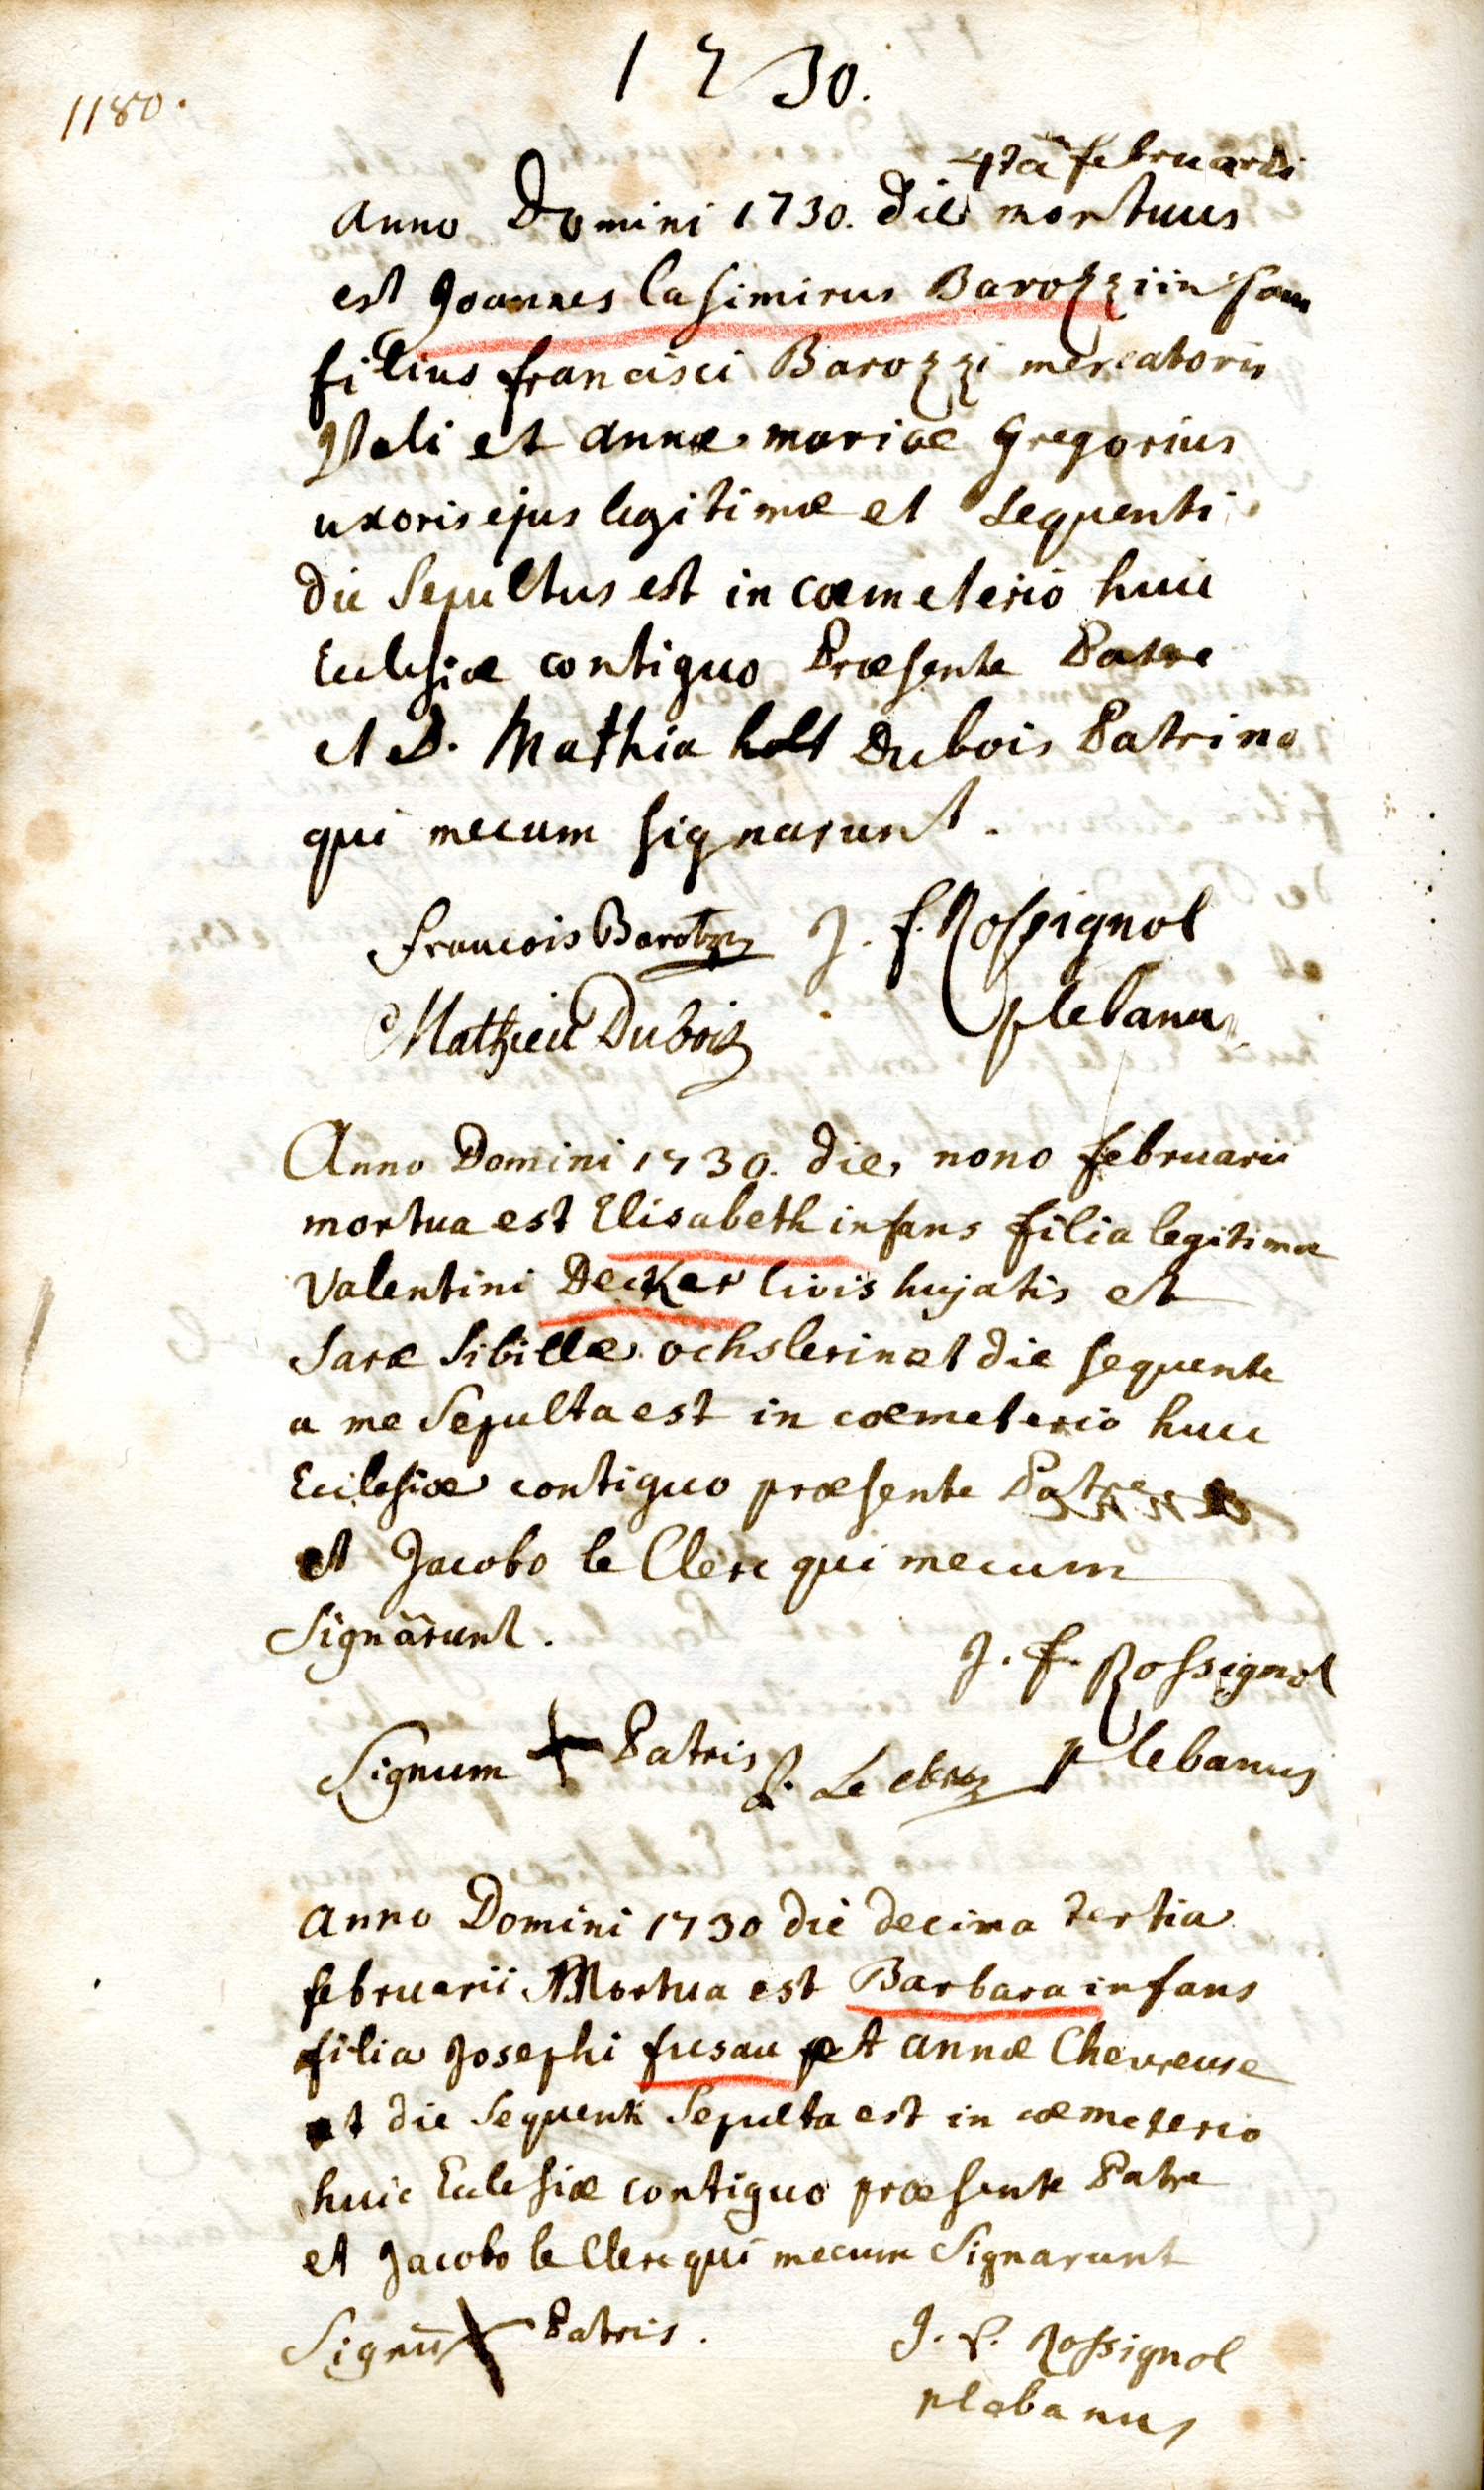 1730.
1180.
4ta februarii
anno Domini 1730. die mortuus
est Joannes Casimirus Barozzi infans
filius francisci Barozzi mercatoris
Itali et annæ mariae Gregorius
uxoris ejus legitimæ et sequenti
die Sepultus est in cœmeterio huic
Ecclesiæ contiguo Præsente Patre
et D. Mathia Dubois Patrino
qui mecum signarunt.
francois Barotzy J. f. Rossignol
Mathieu Dubois plebanus
Anno Domini 1730. die nono februarii
mortua est Elisabeth infans filia legitima
Valentini Decker Civis hujatis et
Saræ Sibillæ ochslerin et die sequente
a me Sepulta est in cœmeterio huic
Ecclesiæ contiguo præsente Patre
et Jacobo le Clerc qui mecum
Signârunt.
J. f. Rossignol
Signum + Patris J. Le clerc plebanus
anno Domini 1730 die decima tertia
februarii Mortua est Barbara infans
filia Josephi fusau et annæ Chevreuse
et die Sequenti Sepulta est in cœmeterio
huic Ecclesiæ contiguo præsente Patre
et Jacobo le Clerc qui mecum Signarunt
Signū + Patris. J. f. Rossignol
plebanus